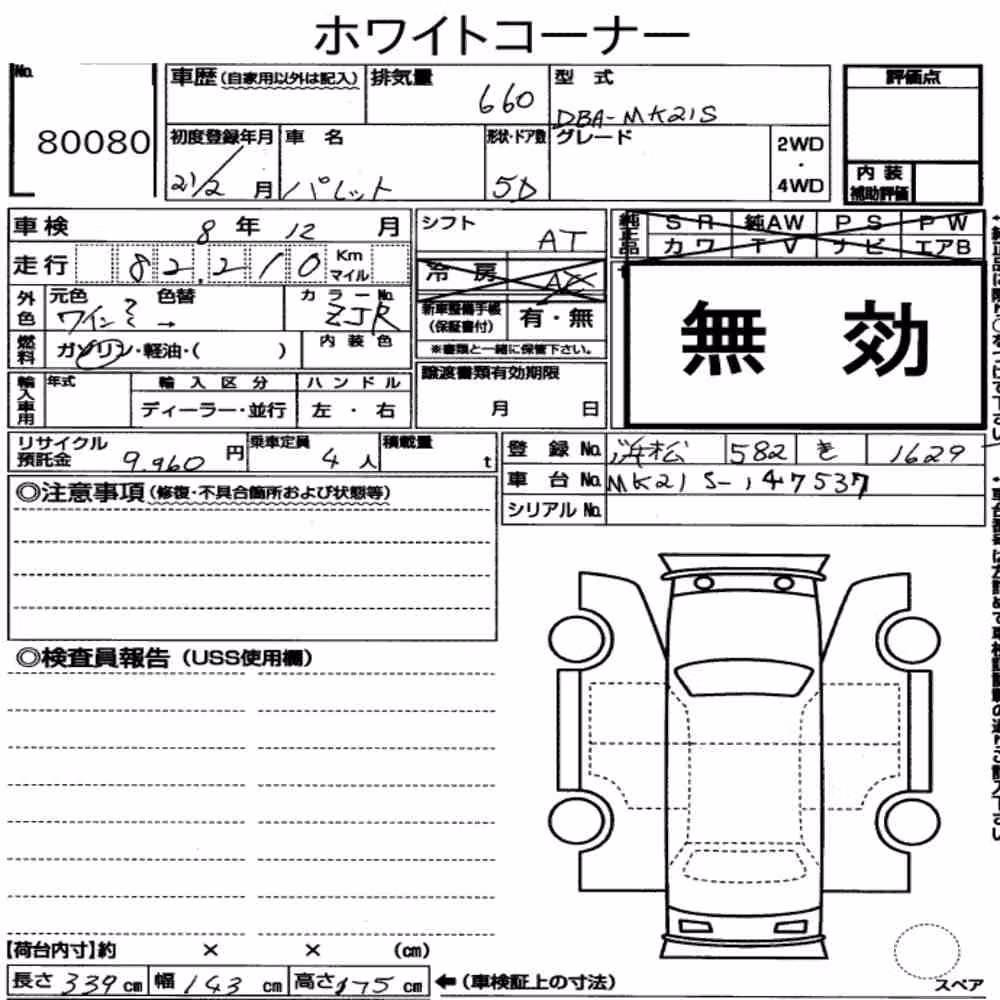 ホワイトコーナー
No. 80080
車歴(自家用以外は記入) 排気量 660 型式 DBA-MK21S 評価点
初度登録年月 21/2月 車名 パレット 形状・ドア数 5D グレード 2WD・4WD
内装補助評価
車検 8年12月 シフト AT
純正品 SR 純AW PS PW
カワ TV ナビ エアB
走行 82,210 Km マイル 冷房 AC
外色 元色 ワイン 色替 カラーNo. ZJR
新車整備手帳(保証書付) 有・無
※書類と一緒に保管下さい。
無効
燃料 ガソリン・軽油・( ) 内装色
譲渡書類有効期限 月 日
輸入車用 年式 輸入区分 ハンドル
ディーラー・並行 左・右
リサイクル預託金 9,960円 乗車定員 4人 積載量 t
登録No. 浜松 582 き 1629
車台No. MK21S-147537
シリアルNo.
◎注意事項(修復・不具合箇所および状態等)
◎検査員報告(USS使用欄)
【荷台内寸】約 × × (cm)
長さ 339cm 幅 143cm 高さ 175cm ←(車検証上の寸法)
スペア